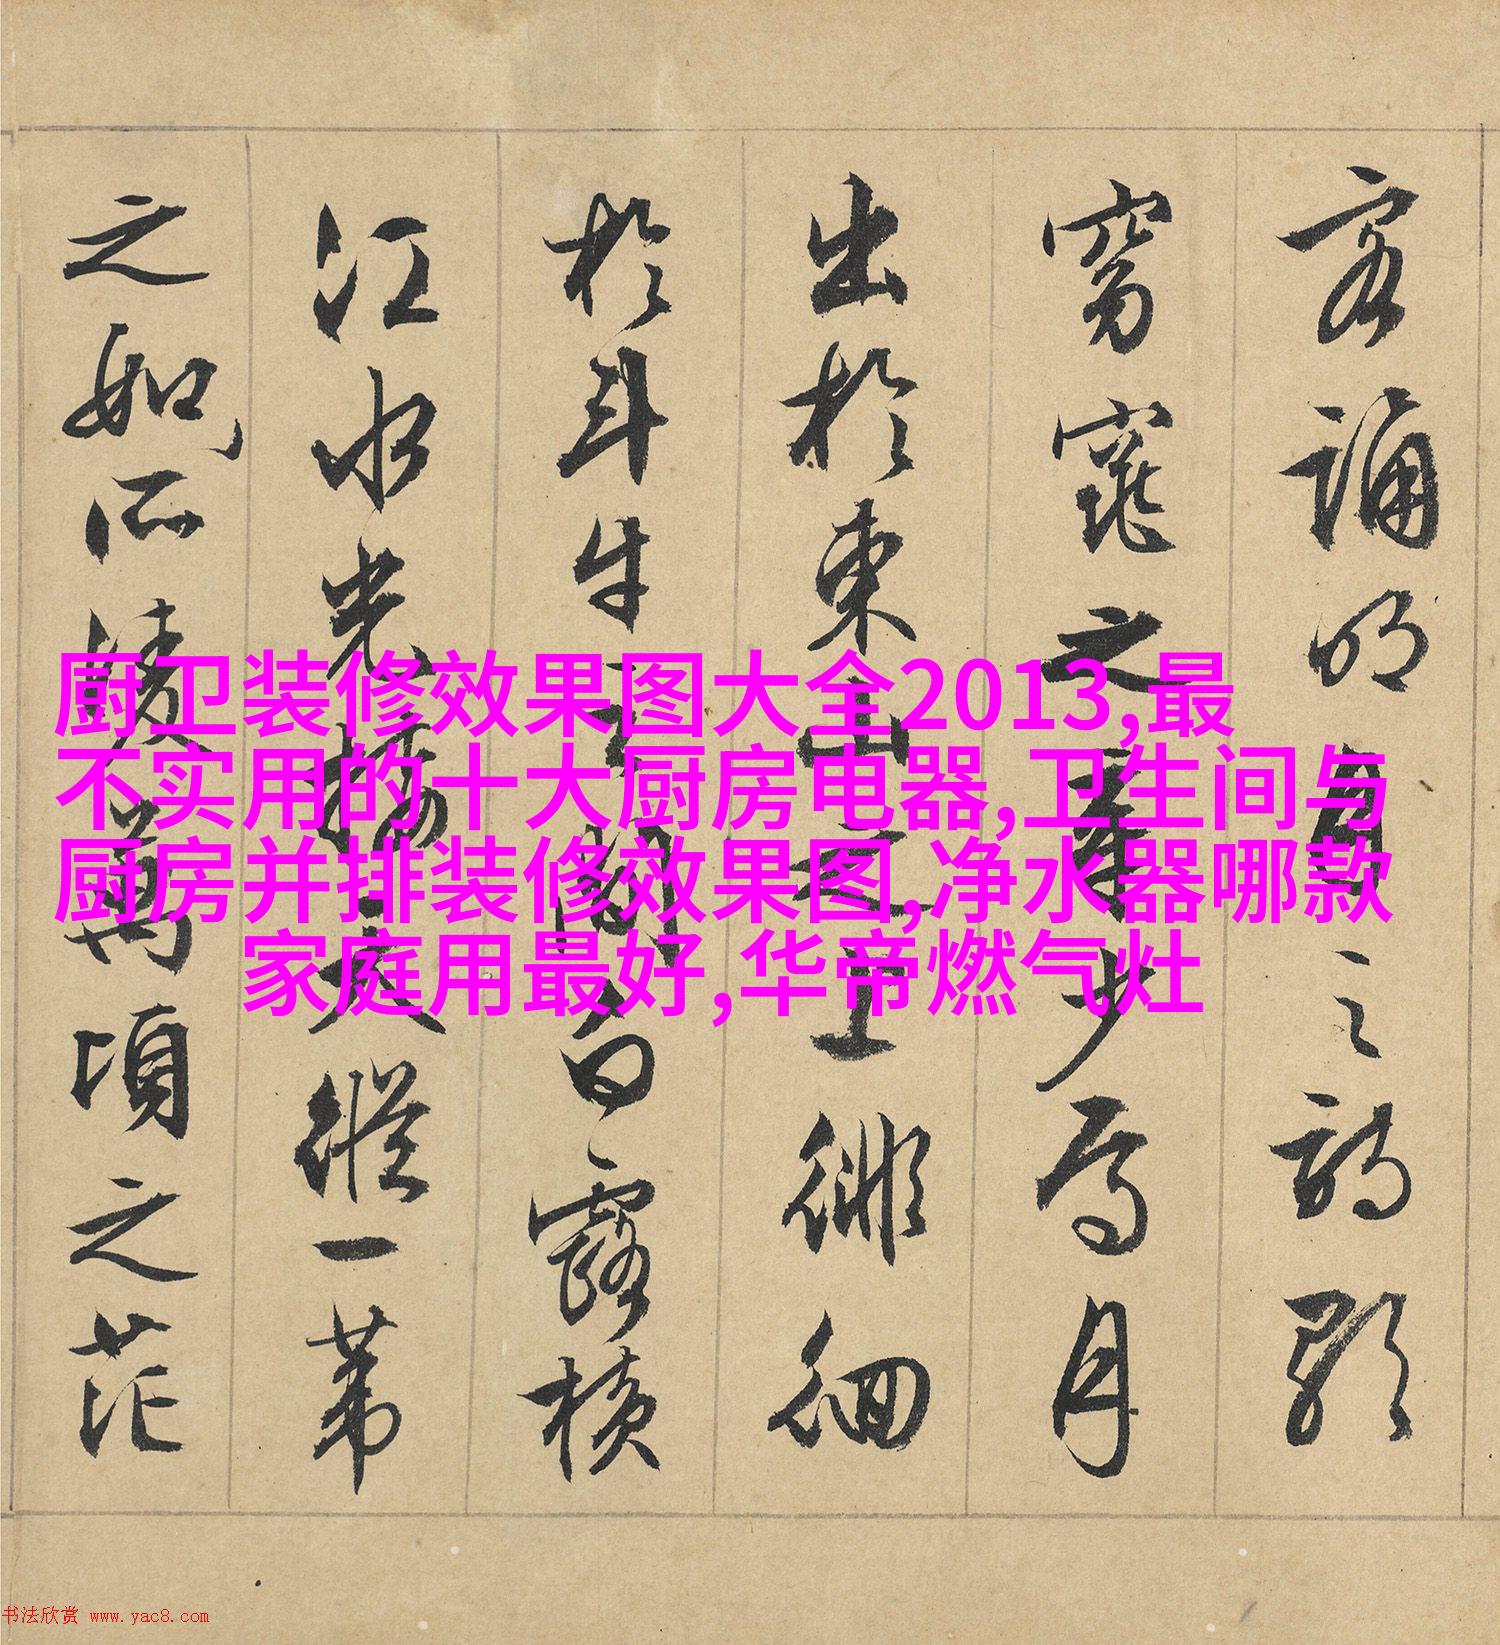 客誦明月之詩歌
窈窕之章少焉月
出於東山之上徘徊
於斗牛之間白露橫
江水光接天縱一葦
之如所陵萬頃之茫
厨卫装修效果图大全2013,最
不实用的十大厨房电器,卫生间与
厨房并排装修效果图,净水器哪款
家庭用最好,华帝燃气灶
书法欣赏 www.yac8.com